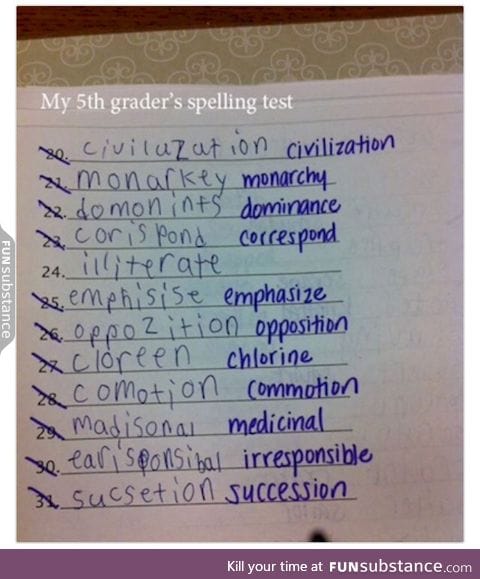 My 5th grader's spelling test
20. civilazation civilization
21. monarkey monarchy
22. domonints dominance
23. corispond correspond
24. illiterate
25. emphisise emphasize
26. oppozition opposition
27. cloreen chlorine
28. comotion commotion
29. madisonal medicinal
30. earisponsibal irresponsible
31. sucsetion succession
FUNsubstance
Kill your time at FUNsubstance.com